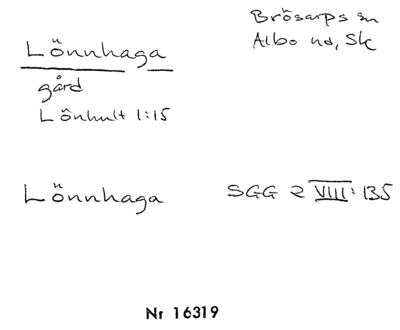 Brösarps sn
Albo hd, Sk
Lönnhaga
gård
Lönhult 1:15
Lönnhaga SGG 2 VIII: 135
Nr 16319